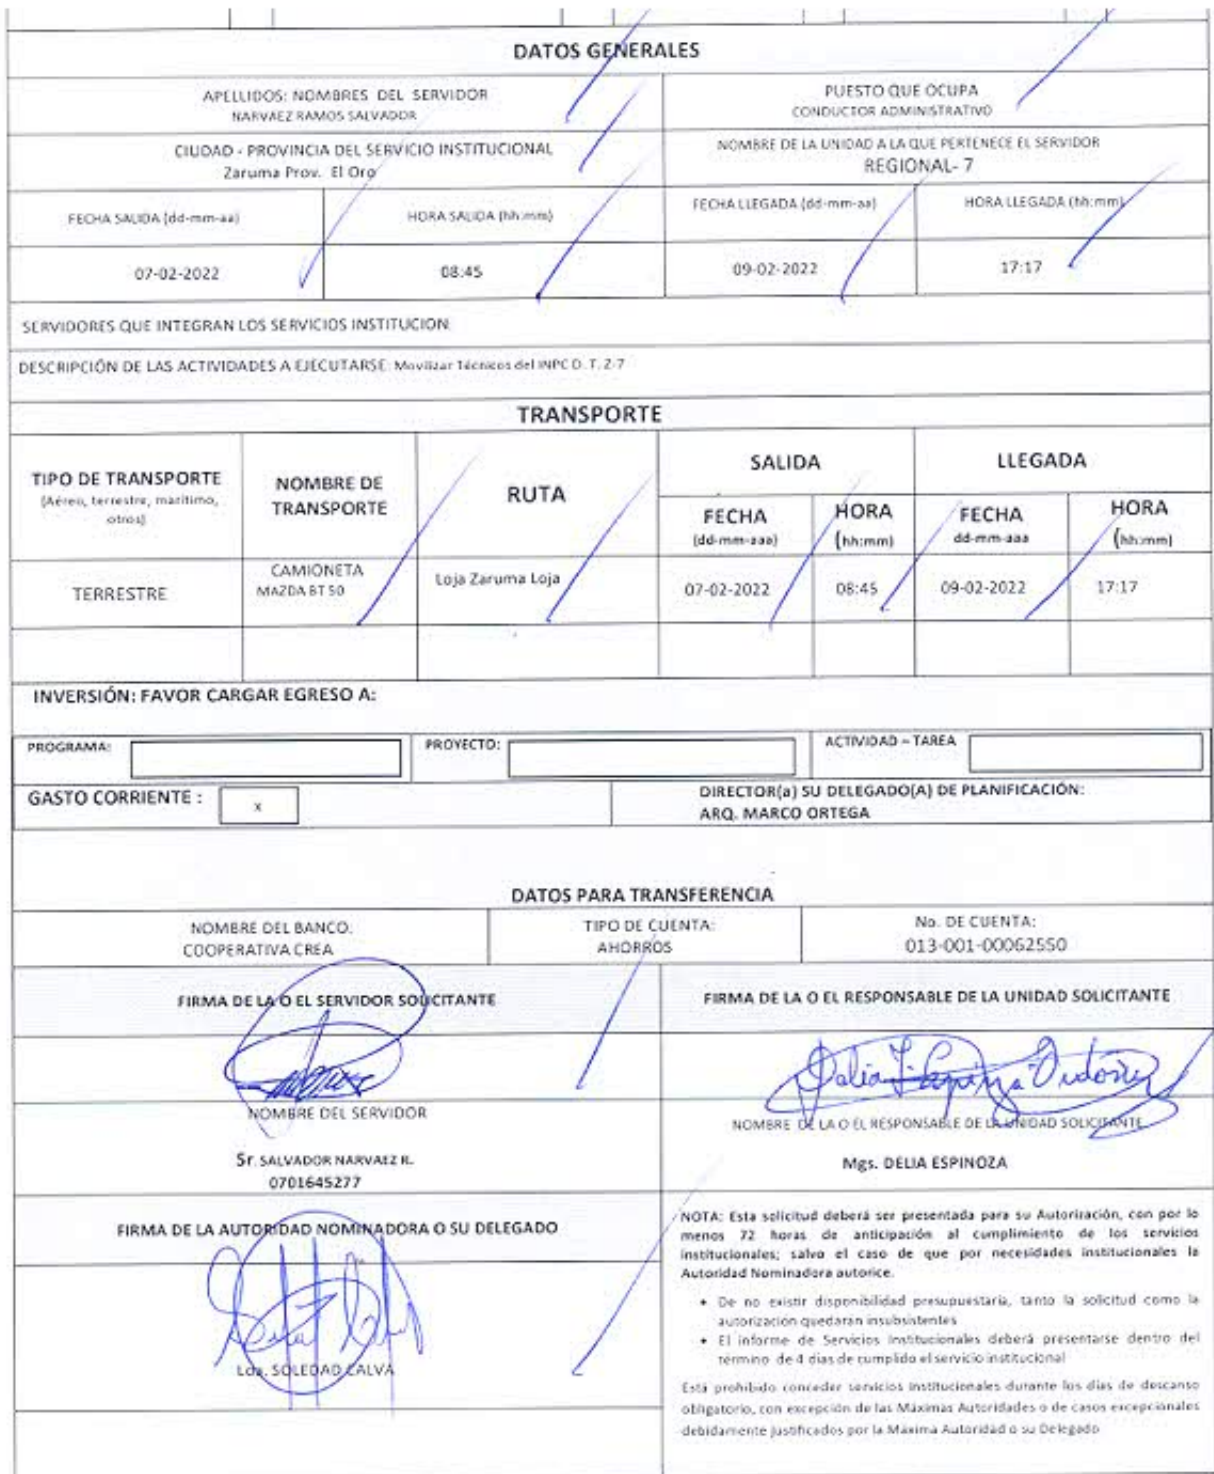 DATOS GENERALES
APELLIDOS: NOMBRES DEL SERVIDOR
NARVAEZ RAMOS SALVADOR
PUESTO QUE OCUPA
CONDUCTOR ADMINISTRATIVO
CIUDAD - PROVINCIA DEL SERVICIO INSTITUCIONAL
Zaruma Prov. El Oro
NOMBRE DE LA UNIDAD A LA QUE PERTENECE EL SERVIDOR
REGIONAL- 7
FECHA SALIDA (dd-mm-aa)
HORA SALIDA (hh:mm)
FECHA LLEGADA (dd-mm-aa)
HORA LLEGADA (hh:mm)
07-02-2022
08:45
09-02-2022
17:17
SERVIDORES QUE INTEGRAN LOS SERVICIOS INSTITUCION:
DESCRIPCIÓN DE LAS ACTIVIDADES A EJECUTARSE: Movilizar Técnicos del INPC D. T. Z-7
TRANSPORTE
TIPO DE TRANSPORTE
(Aéreo, terrestre, marítimo,
otros)
NOMBRE DE
TRANSPORTE
RUTA
SALIDA
LLEGADA
FECHA
(dd-mm-aaa)
HORA
(hh:mm)
FECHA
dd-mm-aaa
HORA
(hh:mm)
TERRESTRE
CAMIONETA
MAZDA BT 50
Loja Zaruma Loja
07-02-2022
08:45
09-02-2022
17:17
INVERSIÓN: FAVOR CARGAR EGRESO A:
PROGRAMA:
PROYECTO:
ACTIVIDAD – TAREA
GASTO CORRIENTE :
x
DIRECTOR(a) SU DELEGADO(A) DE PLANIFICACIÓN:
ARQ. MARCO ORTEGA
DATOS PARA TRANSFERENCIA
NOMBRE DEL BANCO:
COOPERATIVA CREA
TIPO DE CUENTA:
AHORROS
No. DE CUENTA:
013-001-00062550
FIRMA DE LA O EL SERVIDOR SOLICITANTE
FIRMA DE LA O EL RESPONSABLE DE LA UNIDAD SOLICITANTE
NOMBRE DEL SERVIDOR
Sr. SALVADOR NARVAEZ R.
0701645277
NOMBRE DE LA O EL RESPONSABLE DE LA UNIDAD SOLICITANTE
Mgs. DELIA ESPINOZA
FIRMA DE LA AUTORIDAD NOMINADORA O SU DELEGADO
Lda. SOLEDAD CALVA
NOTA: Esta solicitud deberá ser presentada para su Autorización, con por lo
menos 72 horas de anticipación al cumplimiento de los servicios
institucionales; salvo el caso de que por necesidades institucionales la
Autoridad Nominadora autorice.
• De no existir disponibilidad presupuestaria, tanto la solicitud como la
autorización quedarán insubsistentes
• El informe de Servicios Institucionales deberá presentarse dentro del
término de 4 días de cumplido el servicio institucional
Está prohibido conceder servicios institucionales durante los días de descanso
obligatorio, con excepción de las Máximas Autoridades o de casos excepcionales
debidamente justificados por la Máxima Autoridad o su Delegado